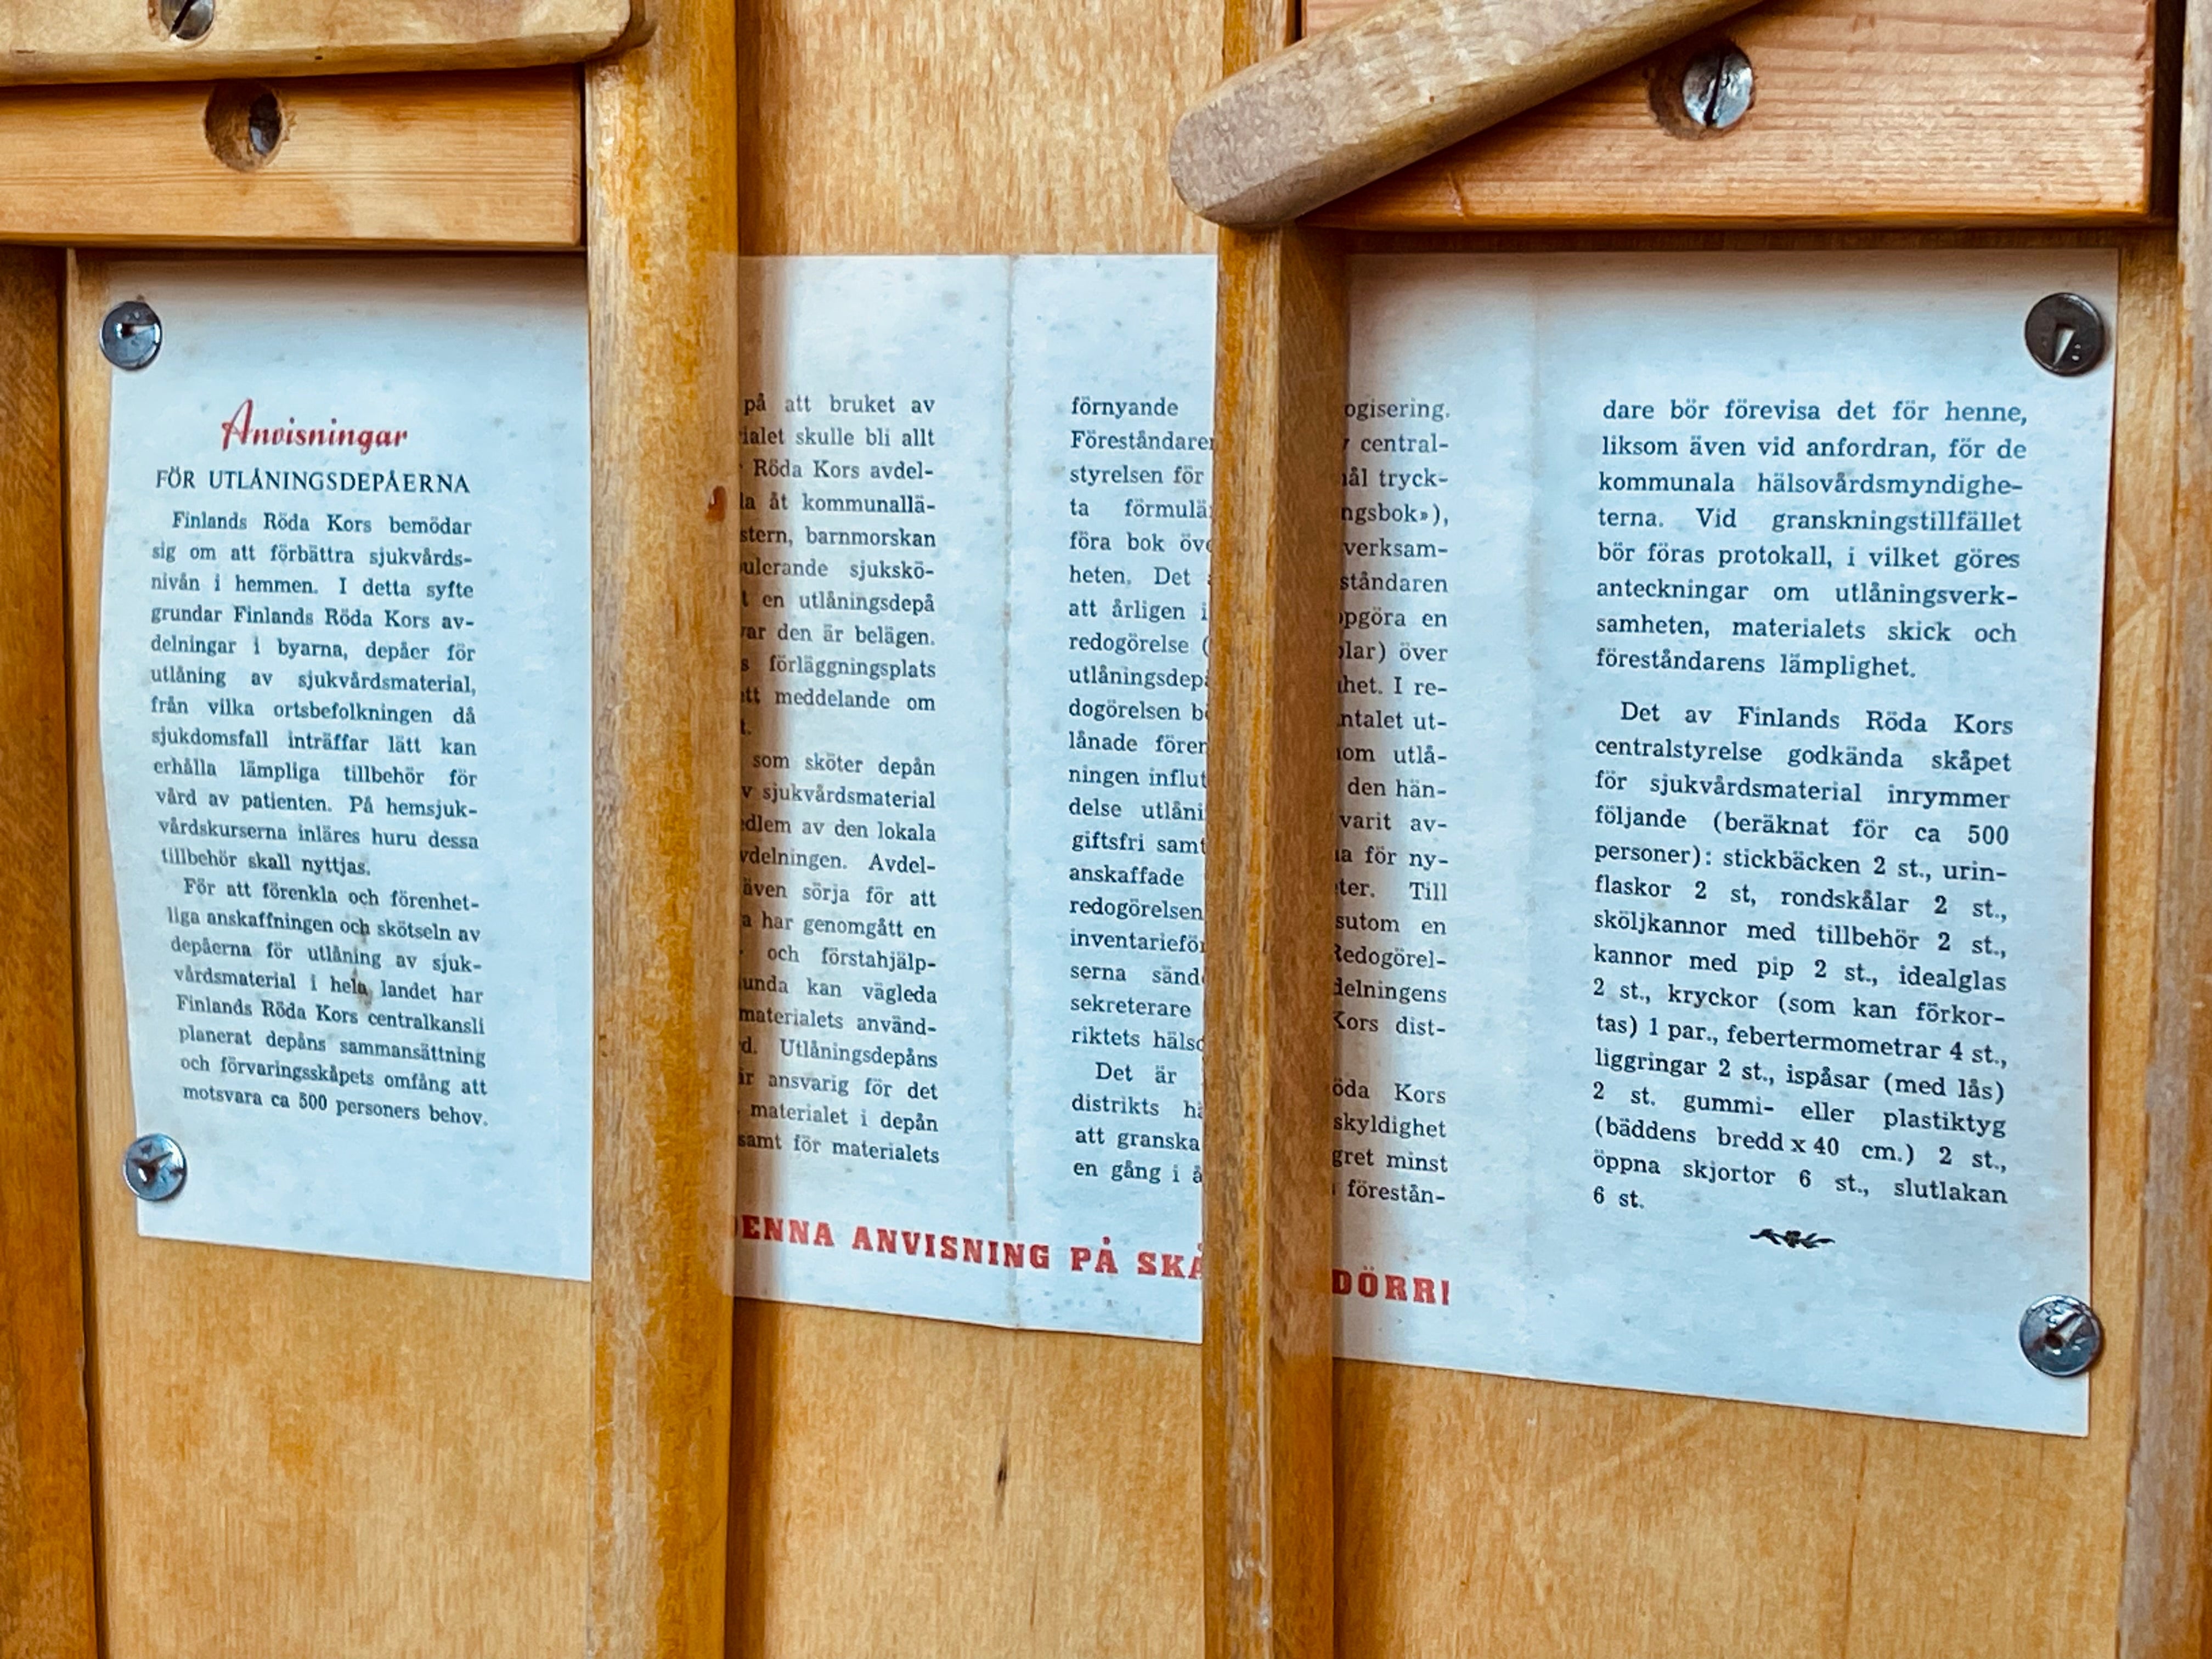 Anvisningar
FÖR UTLÅNINGSDEPÅERNA
Finlands Röda Kors bemödar
sig om att förbättra sjukvårds-
nivån i hemmen. I detta syfte
grundar Finlands Röda Kors av-
delningar i byarna, depåer för
utlåning av sjukvårdsmaterial,
från vilka ortsbefolkningen då
sjukdomsfall inträffar lätt kan
erhålla lämpliga tillbehör för
vård av patienten. På hemsjuk-
vårdskurserna inläres huru dessa
tillbehör skall nyttjas.
För att förenkla och förenhet-
liga anskaffningen och skötseln av
depåerna för utlåning av sjuk-
vårdsmaterial i hela landet har
Finlands Röda Kors centralkansli
planerat depåns sammansättning
och förvaringsskåpets omfång att
motsvara ca 500 personers behov.
på att bruket av
ialet skulle bli allt
Röda Kors avdel-
la åt kommunallä-
stern, barnmorskan
ulerande sjukskö-
t en utlåningsdepå
var den är belägen.
s förläggningsplats
ett meddelande om
t.
som sköter depån
v sjukvårdsmaterial
edlem av den lokala
vdelningen. Avdel-
även sörja för att
a har genomgått en
och förstahjälp-
unda kan vägleda
materialets använd-
d. Utlåningsdepåns
är ansvarig för det
materialet i depån
samt för materialets
förnyande
Föreståndarer
styrelsen för
ta formulä
föra bok öve
heten. Det
att årligen i
redogörelse (
utlåningsdepå
dogörelsen bö
lånade fören
ningen influt
delse utlåni
giftsfri samt
anskaffade
redogörelsen
inventarieför
serna sände
sekreterare
riktets hälso
Det är
distrikts hä
att granska
en gång i å
ogisering.
central-
ål tryck-
ngsbok»),
verksam-
ståndaren
ppgöra en
lar) över
het. I re-
ntalet ut-
om utlå-
den hän-
varit av-
a för ny-
ter. Till
sutom en
Redogörel-
delningens
Kors dist-
öda Kors
skyldighet
gret minst
förestån-
dare bör förevisa det för henne,
liksom även vid anfordran, för de
kommunala hälsovårdsmyndighe-
terna. Vid granskningstillfället
bör föras protokall, i vilket göres
anteckningar om utlåningsverk-
samheten, materialets skick och
föreståndarens lämplighet.
Det av Finlands Röda Kors
centralstyrelse godkända skåpet
för sjukvårdsmaterial inrymmer
följande (beräknat för ca 500
personer): stickbäcken 2 st., urin-
flaskor 2 st, rondskålar 2 st.,
sköljkannor med tillbehör 2 st.,
kannor med pip 2 st., idealglas
2 st., kryckor (som kan förkor-
tas) 1 par., febertermometrar 4 st.,
liggringar 2 st., ispåsar (med lås)
2 st. gummi- eller plastiktyg
(bäddens bredd x 40 cm.) 2 st.,
öppna skjortor 6 st., slutlakan
6 st.
DENNA ANVISNING PÅ SKÅ DÖRR!